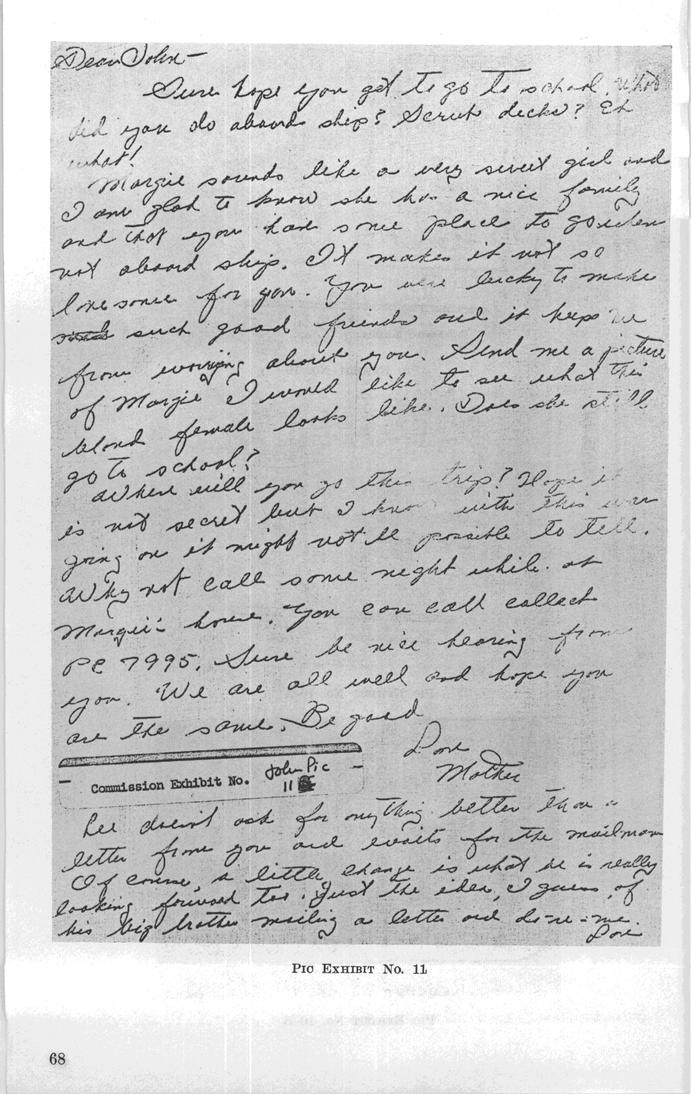 Dear John -
Sure hope you get to go to school. What
did you do aboard ship? Scrub decks? Eh
what!
Margie sounds like a very sweet girl and
I am glad to know she has a nice family
and that you have some place to go when
not aboard ship. It makes it not so
lonesome for you. You were lucky to make
such good friends and it keeps me
from worrying about you. Send me a picture
of Margie I would like to see what this
blond female looks like. Does she still
go to school?
Where will you go this trip? Hope it
is not secret but I know with this war
going on it might not be possible to tell.
Why not call some night while at
Margie's house. You can call collect
PE 7995. Sure be nice hearing from
you. We are all well and hope you
are the same. Be good
Love
Mother
Commission Exhibit No. John Pic
11
Lee doesn't ask for anything better than a
letter from you and waits for the mailman
Of course, a little change is what he is really
looking forward too. Just the idea, I guess, of
his big brother mailing a letter and do-re-me.
Love
PIC EXHIBIT NO. 11
68